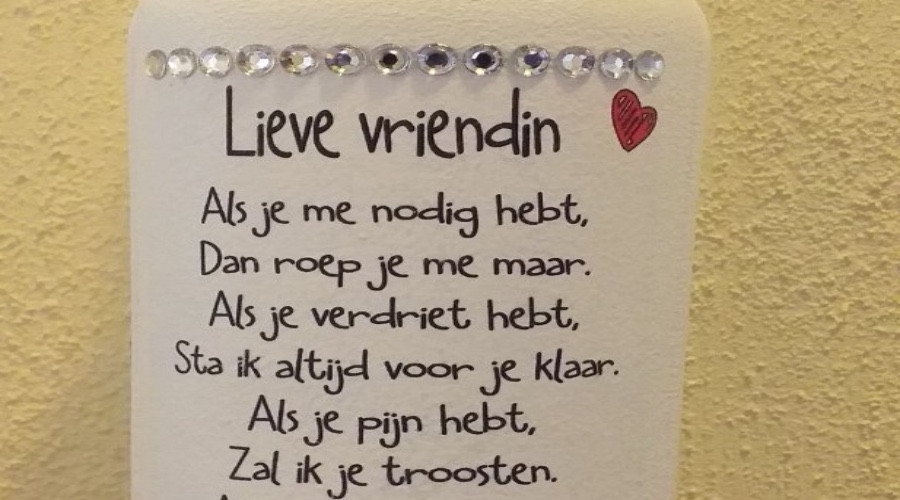 Lieve vriendin
Als je me nodig hebt,
Dan roep je me maar.
Als je verdriet hebt,
Sta ik altijd voor je klaar.
Als je pijn hebt,
Zal ik je troosten.